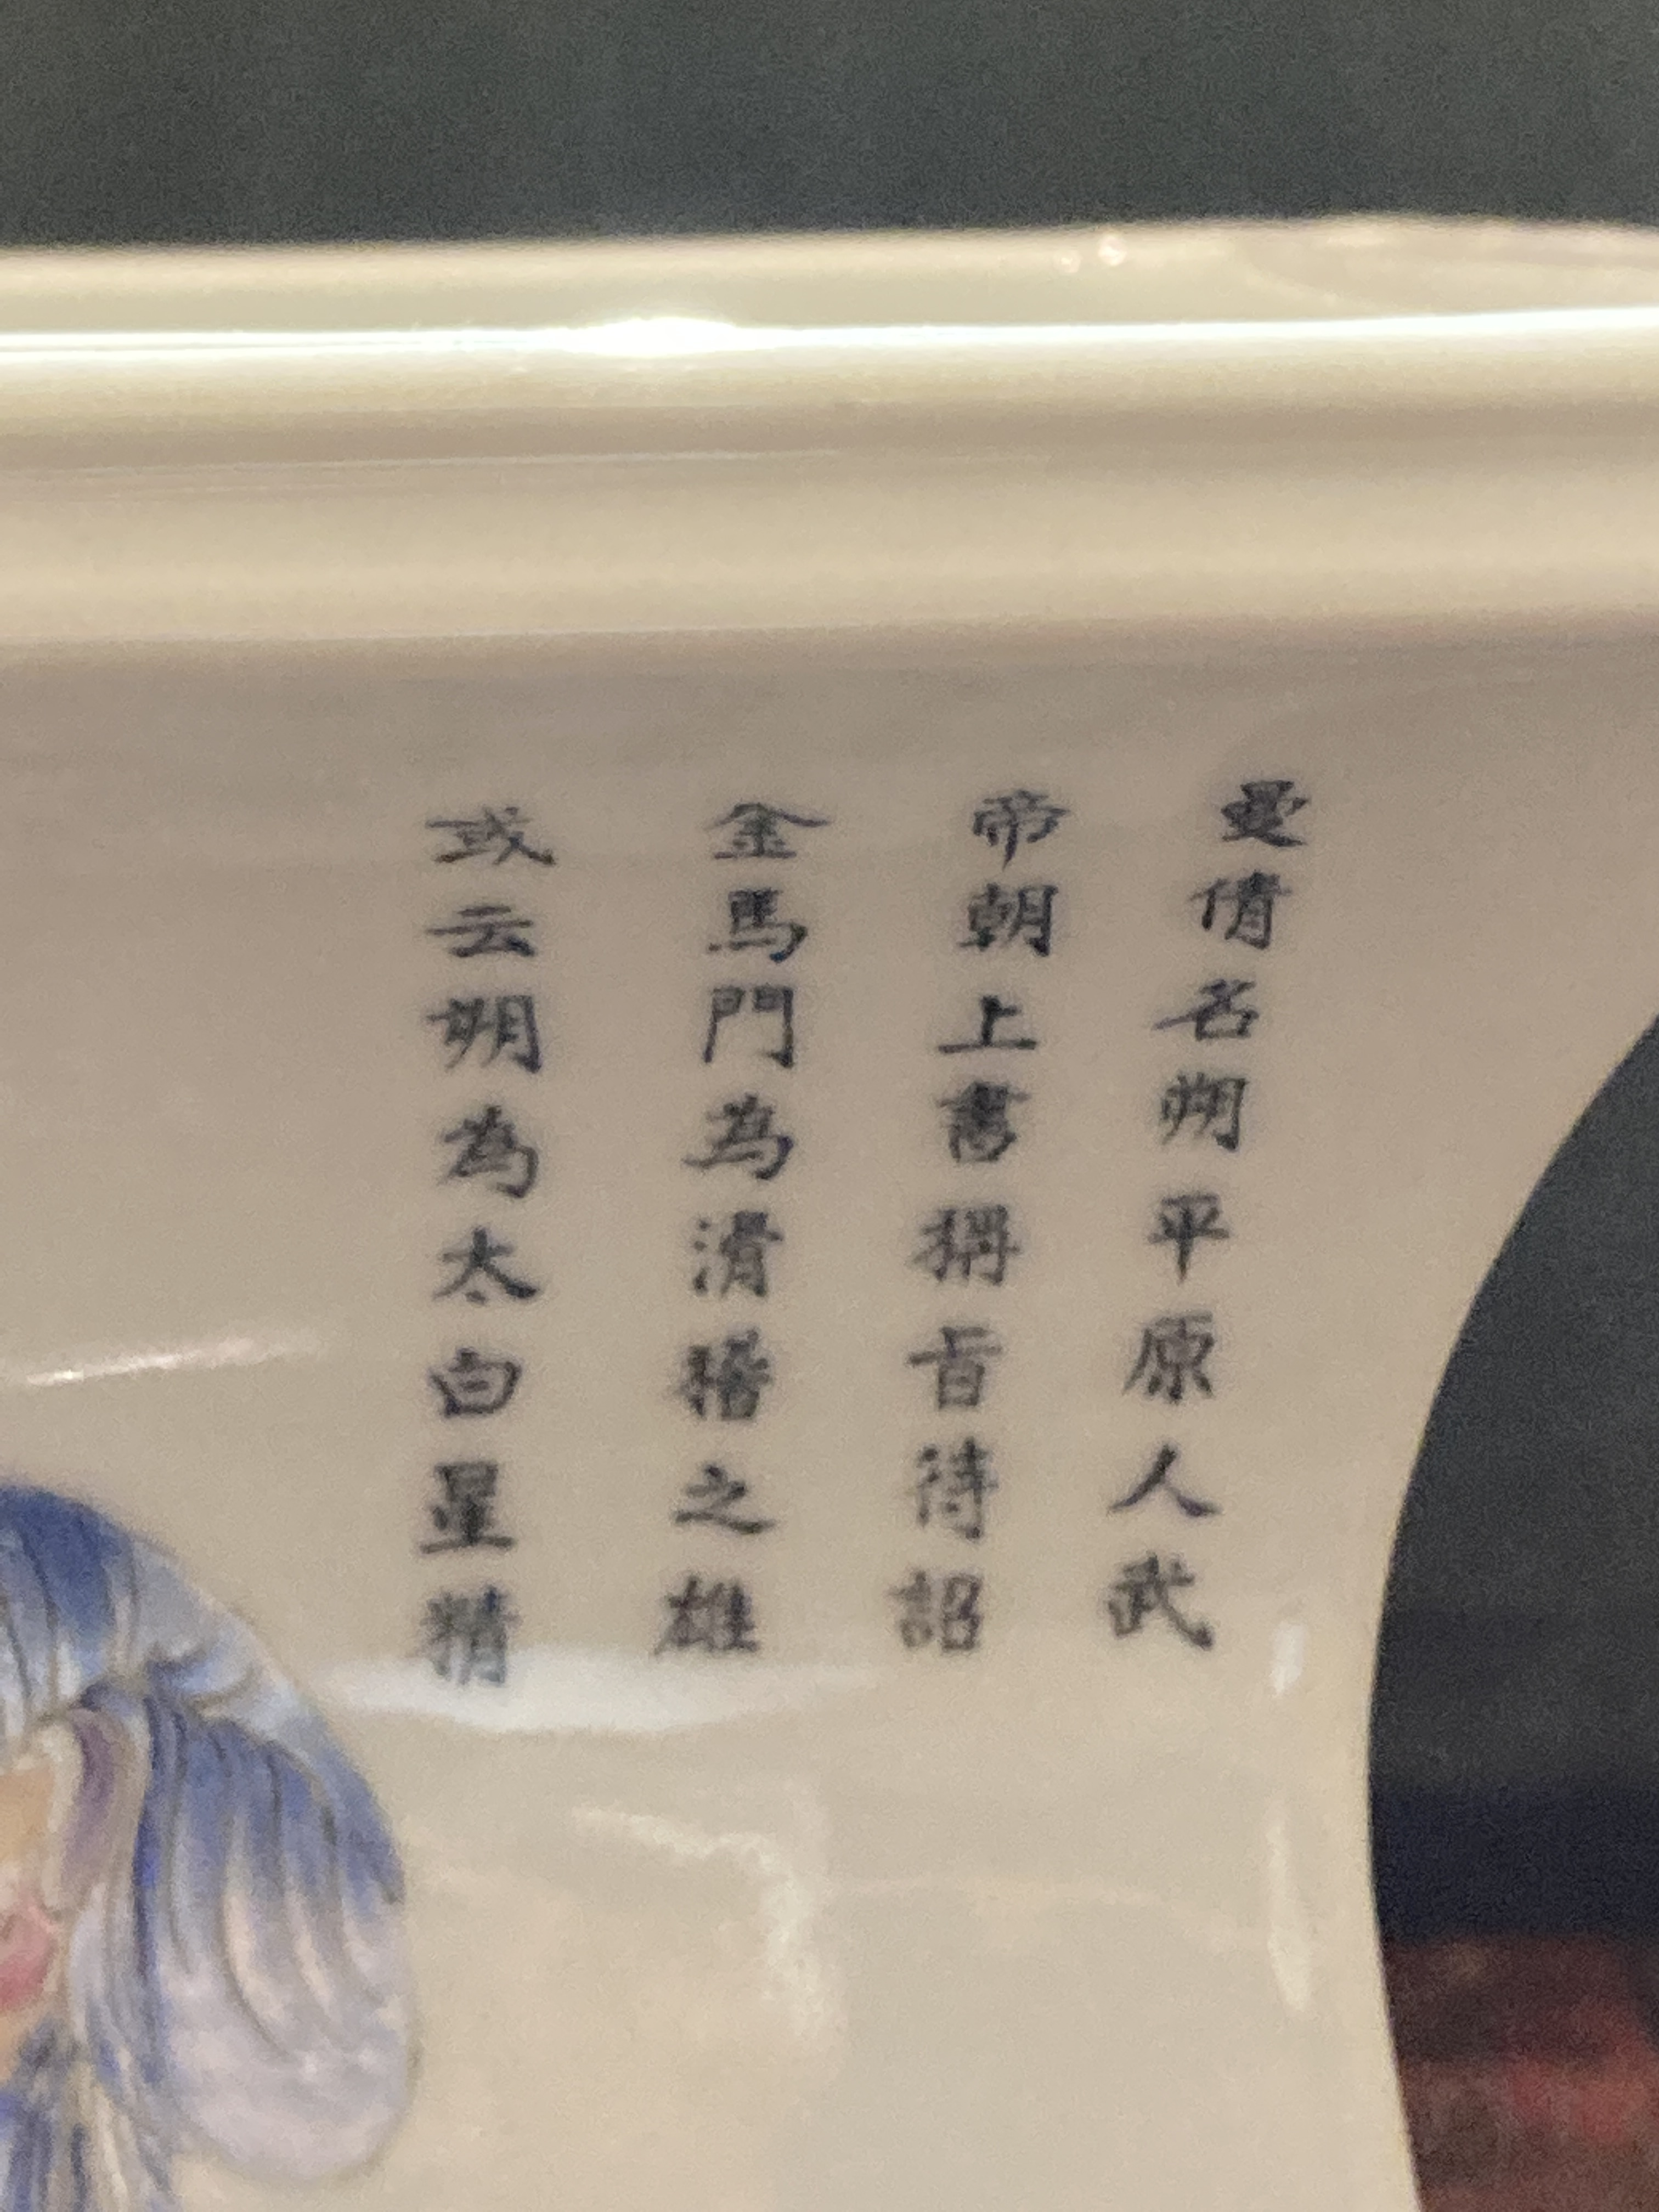 曼倩名朔平原人武
帝朝上書稱旨待詔
金馬門為滑稽之雄
或云朔為太白星精